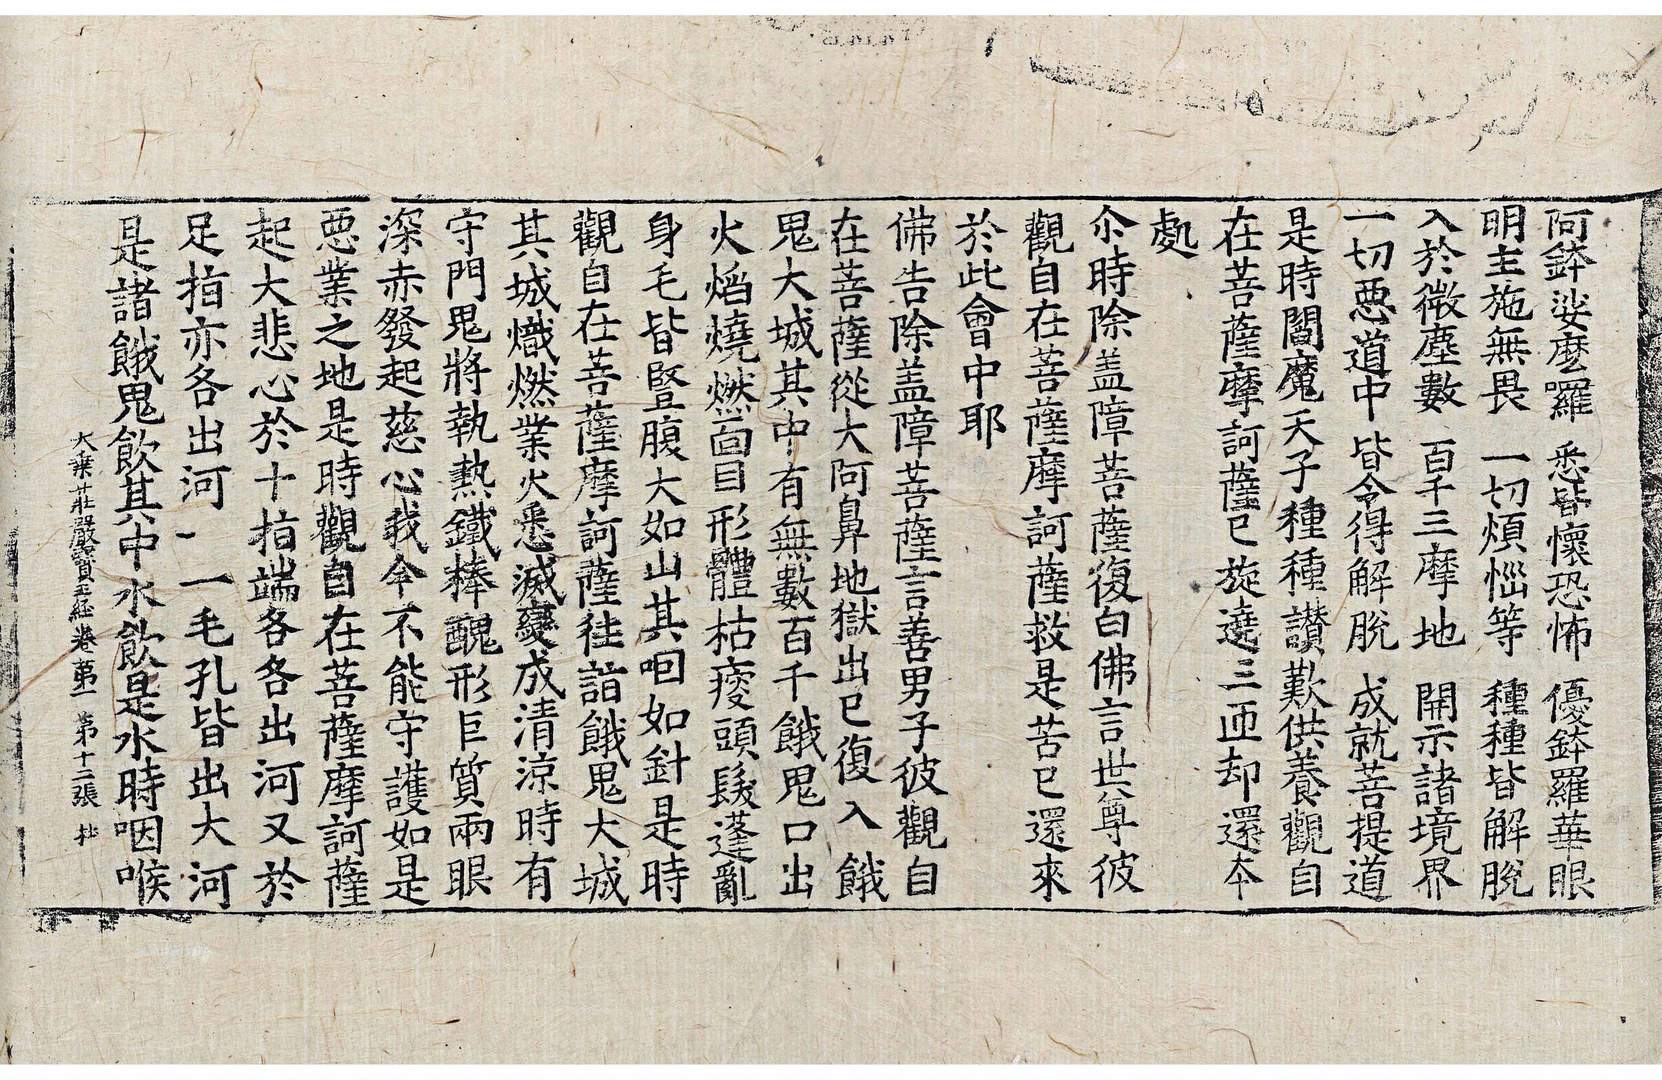 阿鉢娑麽囉　悉皆懷恐怖　優鉢羅華眼
明主施無畏　一切煩惱等　種種皆解脫
入於微塵數　百千三摩地　開示諸境界
一切惡道中　皆令得解脫　成就菩提道
是時閻魔天子種種讃歎供養觀自
在菩薩摩訶薩已旋遶三匝却還本
處
尒時除盖障菩薩復白佛言世尊彼
觀自在菩薩摩訶薩救是苦已還來
於此會中耶
佛告除盖障菩薩言善男子彼觀自
在菩薩從大阿鼻地獄出已復入餓
鬼大城其中有無數百千餓鬼口出
火焰燒燃面目形體枯瘦頭髮蓬亂
身毛皆竪腹大如山其咽如針是時
觀自在菩薩摩訶薩徃詣餓鬼大城
其城熾燃業火悉滅變成清涼時有
守門鬼將執熱鐵棒醜形巨質兩眼
深赤發起慈心我今不能守護如是
惡業之地是時觀自在菩薩摩訶薩
起大悲心於十指端各各出河又於
足指亦各出河一一毛孔皆出大河
是諸餓鬼飲其中水飲是水時咽喉
大乗莊嚴寳王經卷第一　第十二張